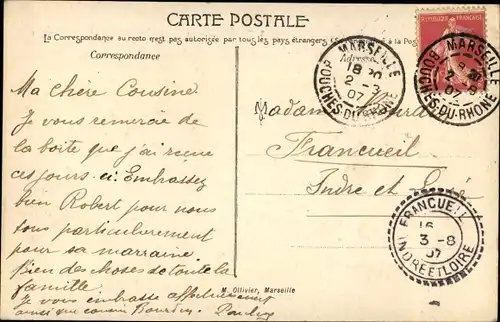 CARTE POSTALE
La Correspondance au recto n'est pas autorisée par tous les pays étrangers
Correspondance
Adresse
Ma chère Cousine
Je vous remercie de
la boite que j'ai reçue
ces jours ci. Embrassez
bien Robert pour nous
tous particulièrement
pour sa marraine
Bien des choses de toute la
famille
Je vous embrasse affectueusement
ainsi que cousin
Madame
Francueil
Indre et
RÉPUBLIQUE FRANÇAISE
MARSEILLE
18
2
07
BOUCHES-DU-RHONE
MARSEILLE
07
BOUCHES-DU-RHONE
FRANCUEIL
16
3-8
07
INDRE ET LOIRE
M. Ollivier, Marseille